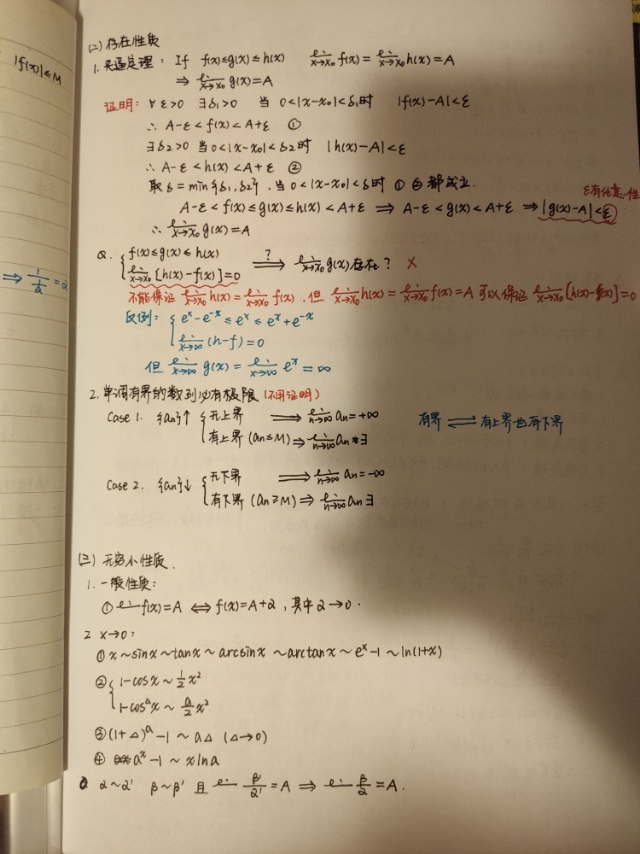 |f(x)|≤M
⇒ 1/2 = 2
(二) 存在性质
1. 夹逼定理: If f(x)≤g(x)≤h(x) lim x→x₀ f(x) = lim x→x₀ h(x) = A
⇒ lim x→x₀ g(x) = A
证明: ∀ε>0 ∃δ₁>0 当 0<|x-x₀|<δ₁时 |f(x)-A|<ε
∴ A-ε < f(x) < A+ε ①
∃δ₂>0 当 0<|x-x₀|<δ₂时 |h(x)-A|<ε
∴ A-ε < h(x) < A+ε ②
取 δ = min{δ₁, δ₂}, 当 0<|x-x₀|<δ时 ①②都成立.
ε有任意性
A-ε < f(x) ≤ g(x) ≤ h(x) < A+ε ⇒ A-ε < g(x) < A+ε ⇒ |g(x)-A|<ε
∴ lim x→x₀ g(x) = A
Q. { f(x)≤g(x)≤h(x)
lim x→x₀ [h(x)-f(x)] = 0 ⇒? lim x→x₀ g(x) 存在? ×
不能保证 lim x→x₀ h(x) = lim x→x₀ f(x), 但 lim x→x₀ h(x) = lim x→x₀ f(x) = A 可以保证 lim x→x₀ [h(x)-f(x)] = 0
反例: { eˣ-e⁻ˣ ≤ eˣ ≤ eˣ+e⁻ˣ
lim x→∞ (h-f) = 0
但 lim x→∞ g(x) = lim x→∞ eˣ = ∞
2. 单调有界的数列必有极限 (不用证明)
Case 1. {an}↑ { 无上界 ⇒ lim n→∞ an = +∞
有上界 (an≤M) ⇒ lim n→∞ an ∃
有界 ⇌ 有上界也有下界
Case 2. {an}↓ { 无下界 ⇒ lim n→∞ an = -∞
有下界 (an≥M) ⇒ lim n→∞ an ∃
(三) 无穷小性质.
1. 一般性质:
① lim f(x) = A ⇔ f(x) = A+α, 其中 α→0.
2 x→0:
① x ~ sinx ~ tanx ~ arcsinx ~ arctanx ~ eˣ-1 ~ ln(1+x)
② { 1-cosx ~ 1/2 x²
1-cosᵃx ~ a/2 x²
③ (1+Δ)ᵃ-1 ~ aΔ (Δ→0)
④ aˣ-1 ~ xlna
α~α' β~β' 且 lim β'/α' = A ⇒ lim β/α = A.